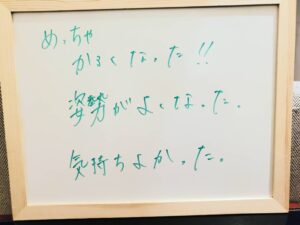 めっちゃ
かるくなった!!
姿勢がよくなった。
気持ちよかった。